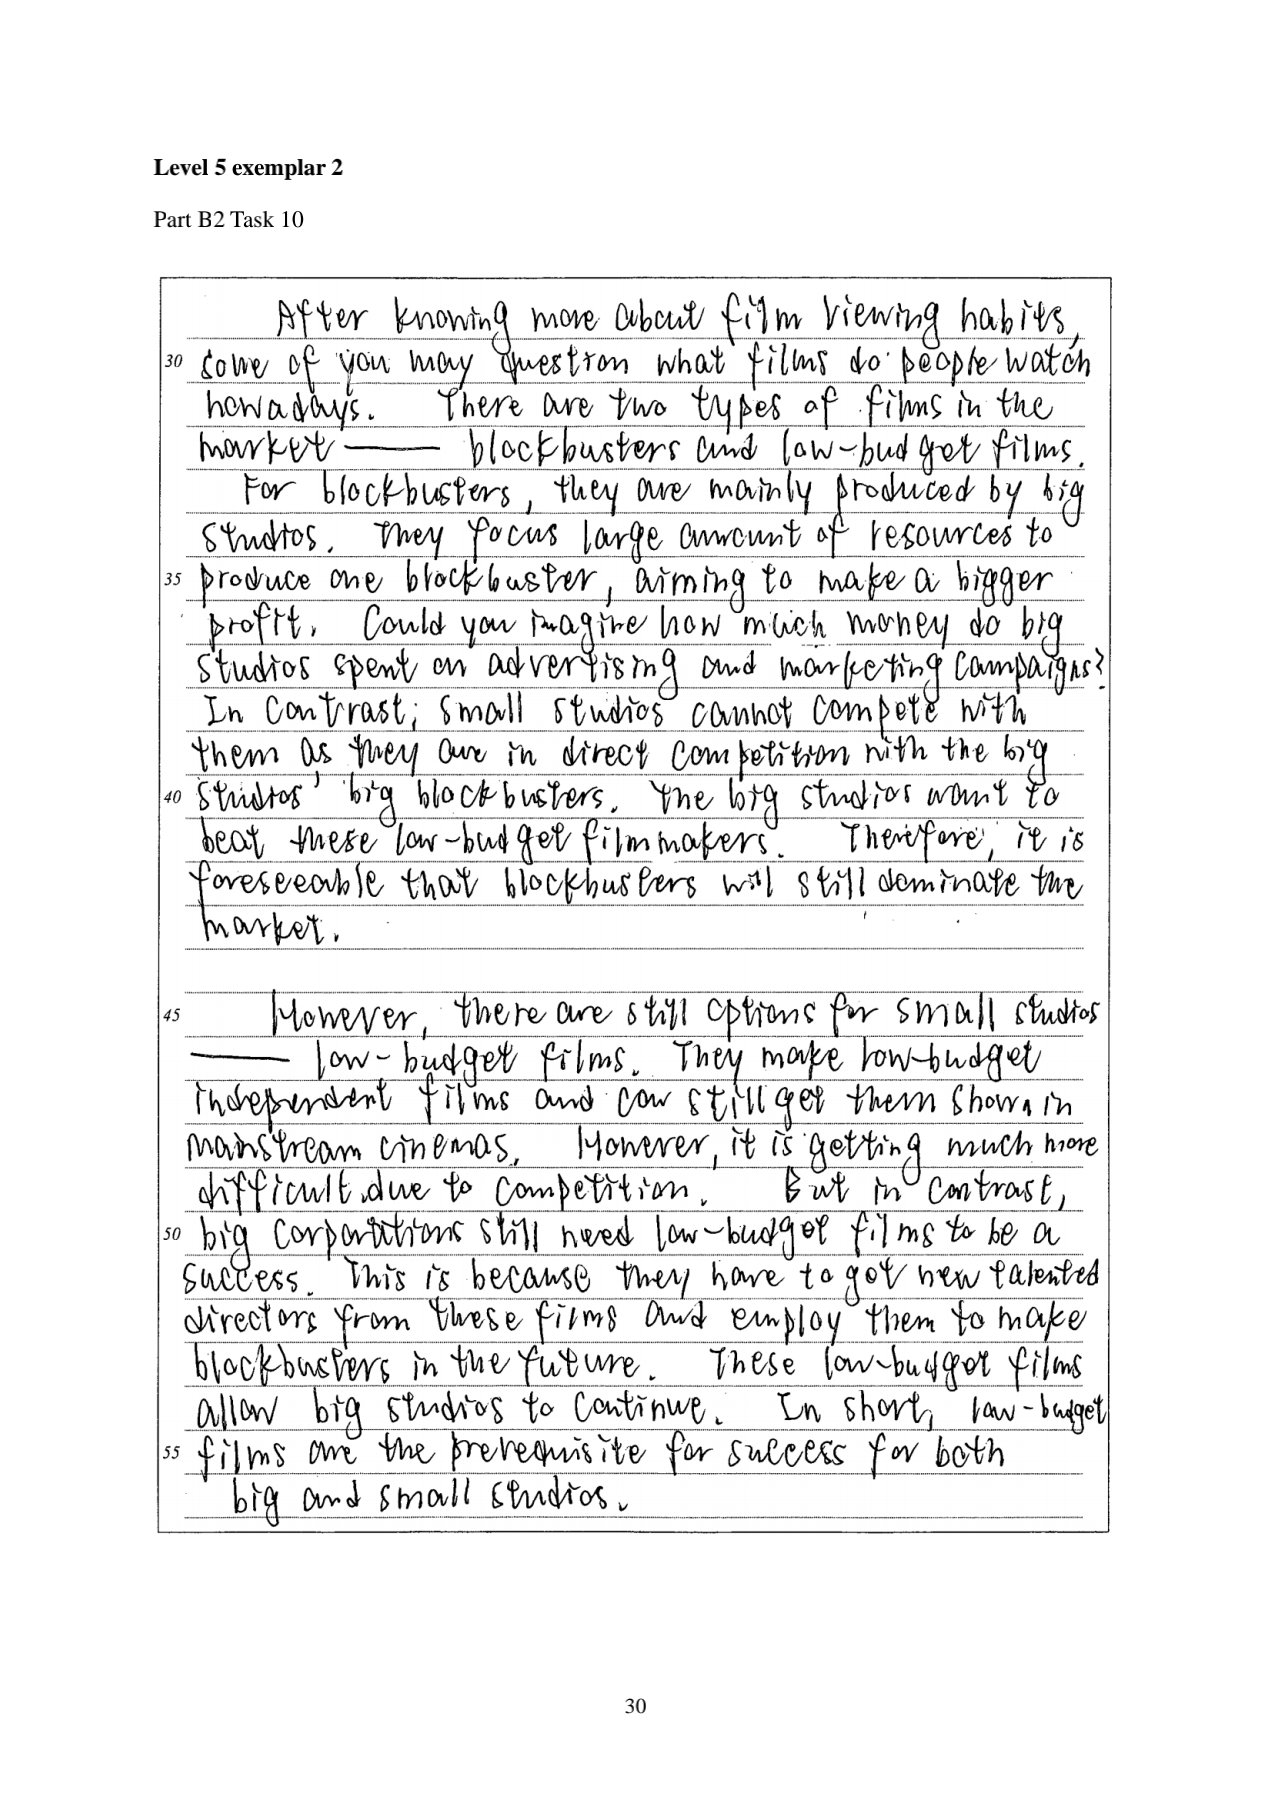 Level 5 exemplar 2
Part B2 Task 10
After knowing more about film viewing habits,
30 some of you may question what films do people watch
nowadays. There are two types of films in the
market —— blockbusters and low-budget films.
For blockbusters, they are mainly produced by big
studios. They focus large amount of resources to
35 produce one blockbuster, aiming to make a bigger
profit. Could you imagine how much money do big
studios spent on advertising and marketing campaigns?
In contrast, small studios cannot compete with
them as they are in direct competition with the big
40 studios' big blockbusters. The big studios want to
beat these low-budget filmmakers. Therefore, it is
foreseeable that blockbusters will still dominate the
market.
45 However, there are still options for small studios
—— low-budget films. They make low-budget
independent films and can still get them shown in
mainstream cinemas. However, it is getting much more
difficult due to competition. But in contrast,
50 big corporations still need low-budget films to be a
success. This is because they have to get new talented
directors from these films and employ them to make
blockbusters in the future. These low-budget films
allow big studios to continue. In short, low-budget
55 films are the prerequisite for success for both
big and small studios.
30